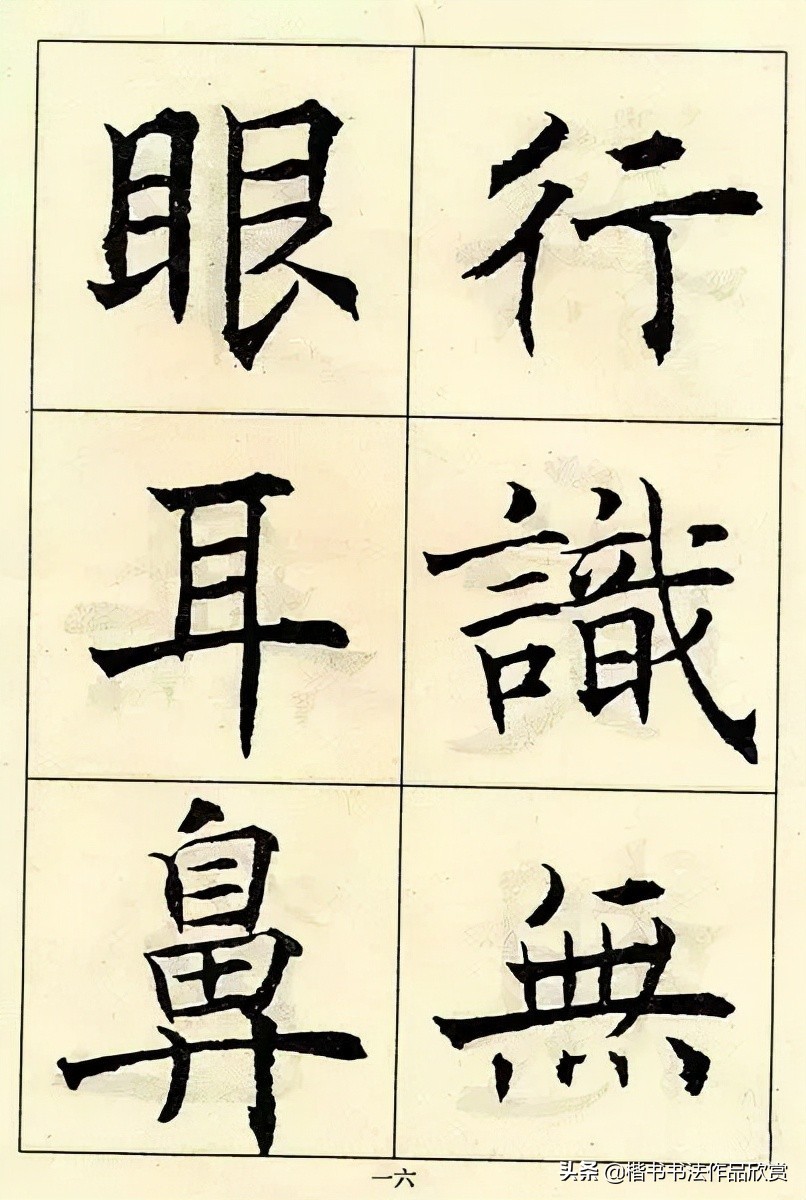 行識無
眼耳鼻
一六
头条 @楷书书法作品欣赏